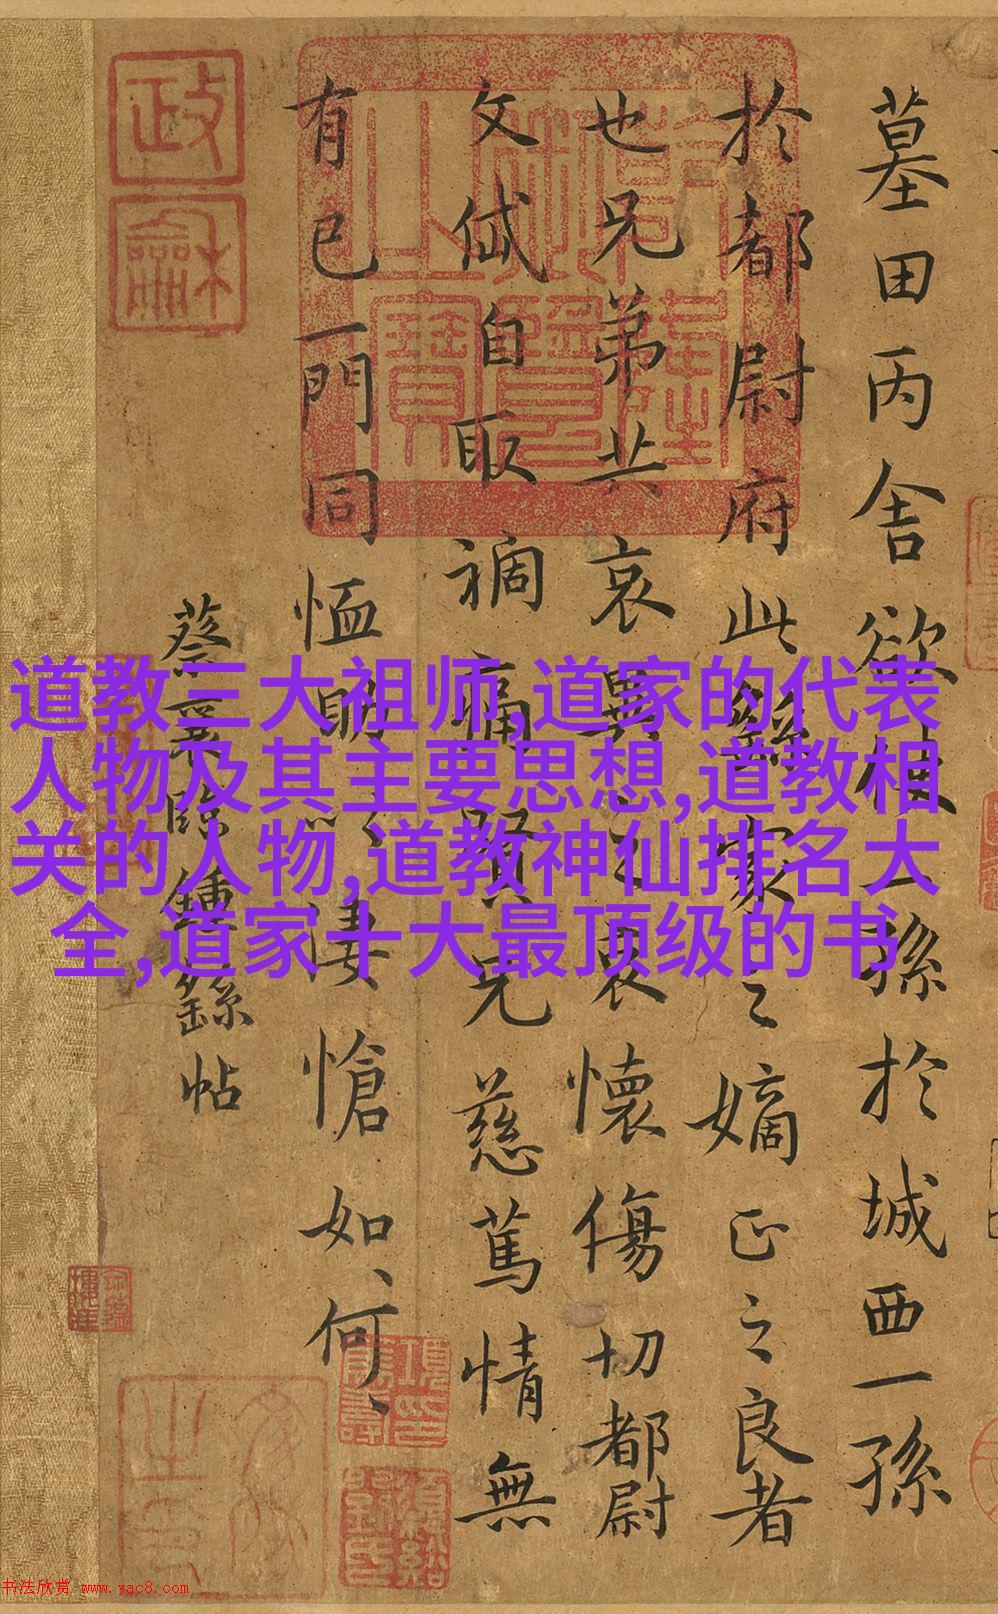 墓田丙舍欲使一孫於城西一孫
於都尉府此繇家之嫡正之良者
也兄弟共哀異之哀懷傷切都尉
文岱自取禍痛賢兄慈篤情無
有已一門同恤助以悽愴如、何、
蔡襄臨鍾繇帖
政龢
道教三大祖师,道家的代表
人物及其主要思想,道教相
关的人物,道教神仙排名大
全,道家十大最顶级的书
书法欣赏 www.yac8.com